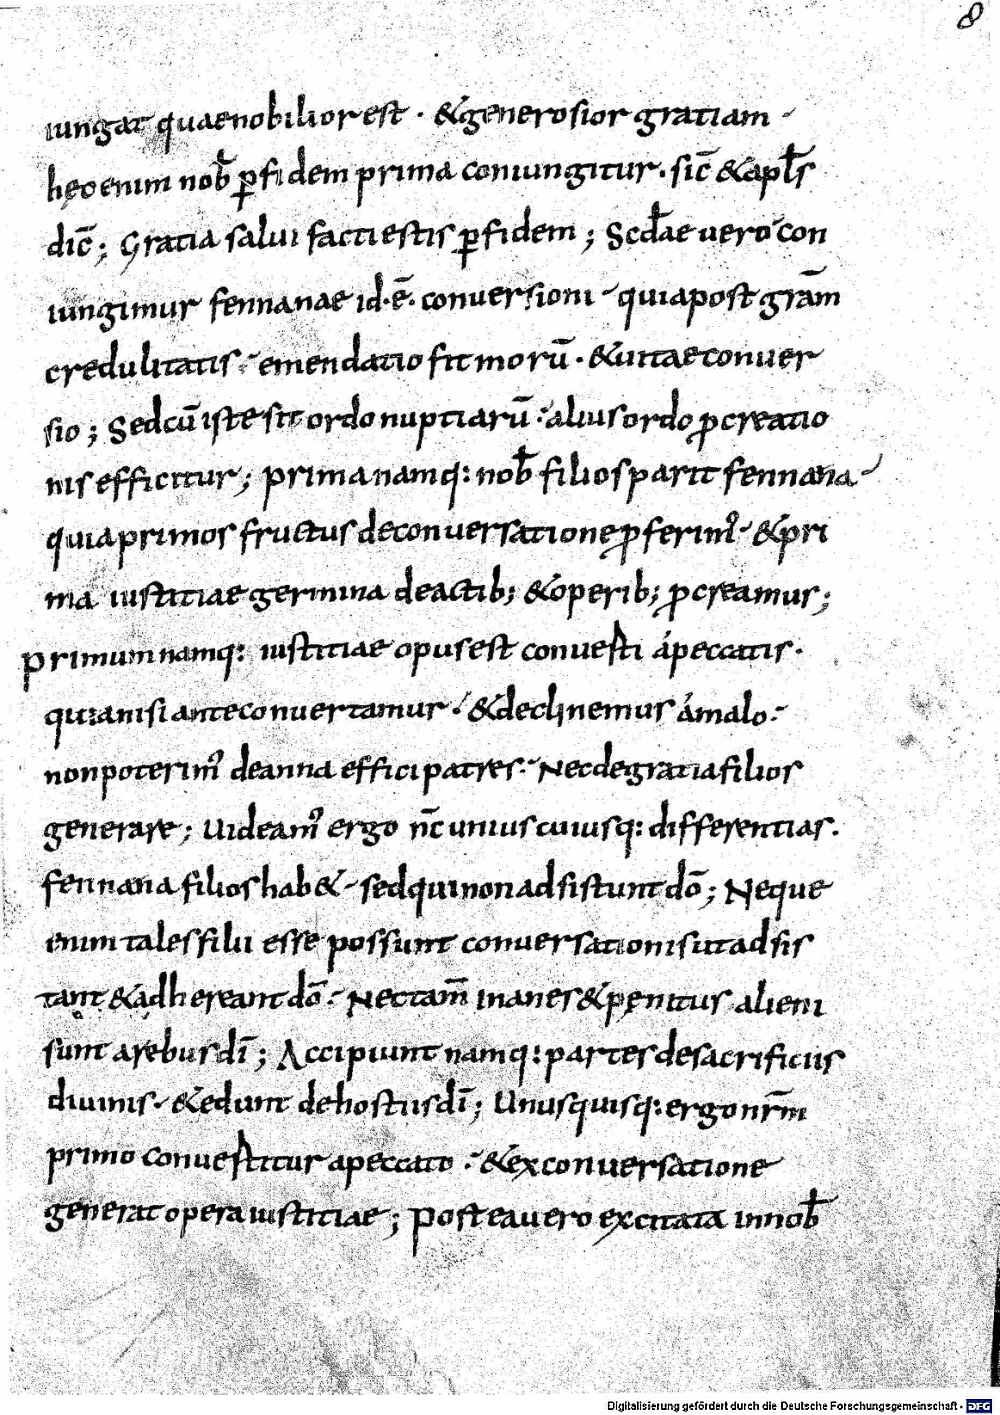 8
iungat quae nobilior est · & generosior gratiam
hęc enim nob̄ ꝑ fidem prima coniungitur. sic̄ & apl̄s
dic̄; Gratia salui facti estis ꝑ fidem; Scd̄ae uero con
iungimur fennanae id·ē· conuersioni quia post gram̄
credulitatis emendatio fit morū · & uitae conuer
sio; Sed cū iste sit ordo nuptiarū alius ordo ꝓcreatio
nis efficitur; prima namq: nob̄ filios parit fennana
quia primos fructus de conuersatione ꝓferim᾿ & pri
ma iustitiae germina de actib; & operib; ꝓcreamus;
primum namq: iustitiae opus est conuerti á peccatis·
quia nisi ante conuertamur & declinemus á malo
non poterim᾿ de anna effici patres Nec de gratia filios
generare; Uideam᾿ ergo nc̄ unius cuiusq: differentias·
fennana filios hab& sed qui non adsistunt dō; Neque
enim tales filii esse possunt conuersationis ut adsis
tant & adhereant dō Nec tam̄ inanes & penitus alieni
sunt a rebus dī; Accipiunt namq: partes de sacrificiis
diuinis & edunt de hostiis dī; Unusquisq: ergo nrm̄
primo conuertitur a peccato & ex conuersatione
generat opera iustitiae; postea uero excitata in nob̄
Digitalisierung gefördert durch die Deutsche Forschungsgemeinschaft - DFG